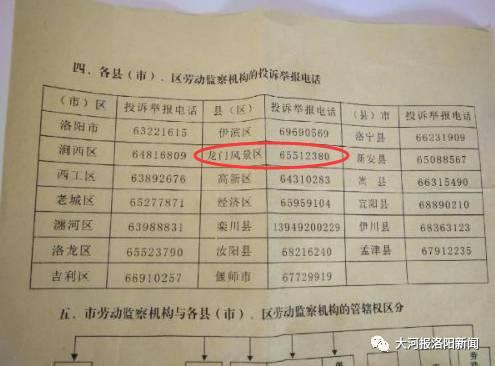 四、各县（市）、区劳动监察机构的投诉举报电话
（市）区 投诉举报电话 县（区） 投诉举报电话 （县）市 投诉举报电话
洛阳市 63221615 伊滨区 69690569 洛宁县 66231909
涧西区 64816809 龙门风景区 65512380 新安县 65088567
西工区 63892676 高新区 64310283 嵩 县 66315490
老城区 65277871 经济区 65959104 宜阳县 68890210
瀍河区 63988831 栾川县 13949200229 伊川县 68363123
洛龙区 65523790 汝阳县 68216240 孟津县 67912235
吉利区 66910257 偃师市 67729919
五、市劳动监察机构与各县（市）、区劳动监察机构的管辖权区分
大河报洛阳新闻